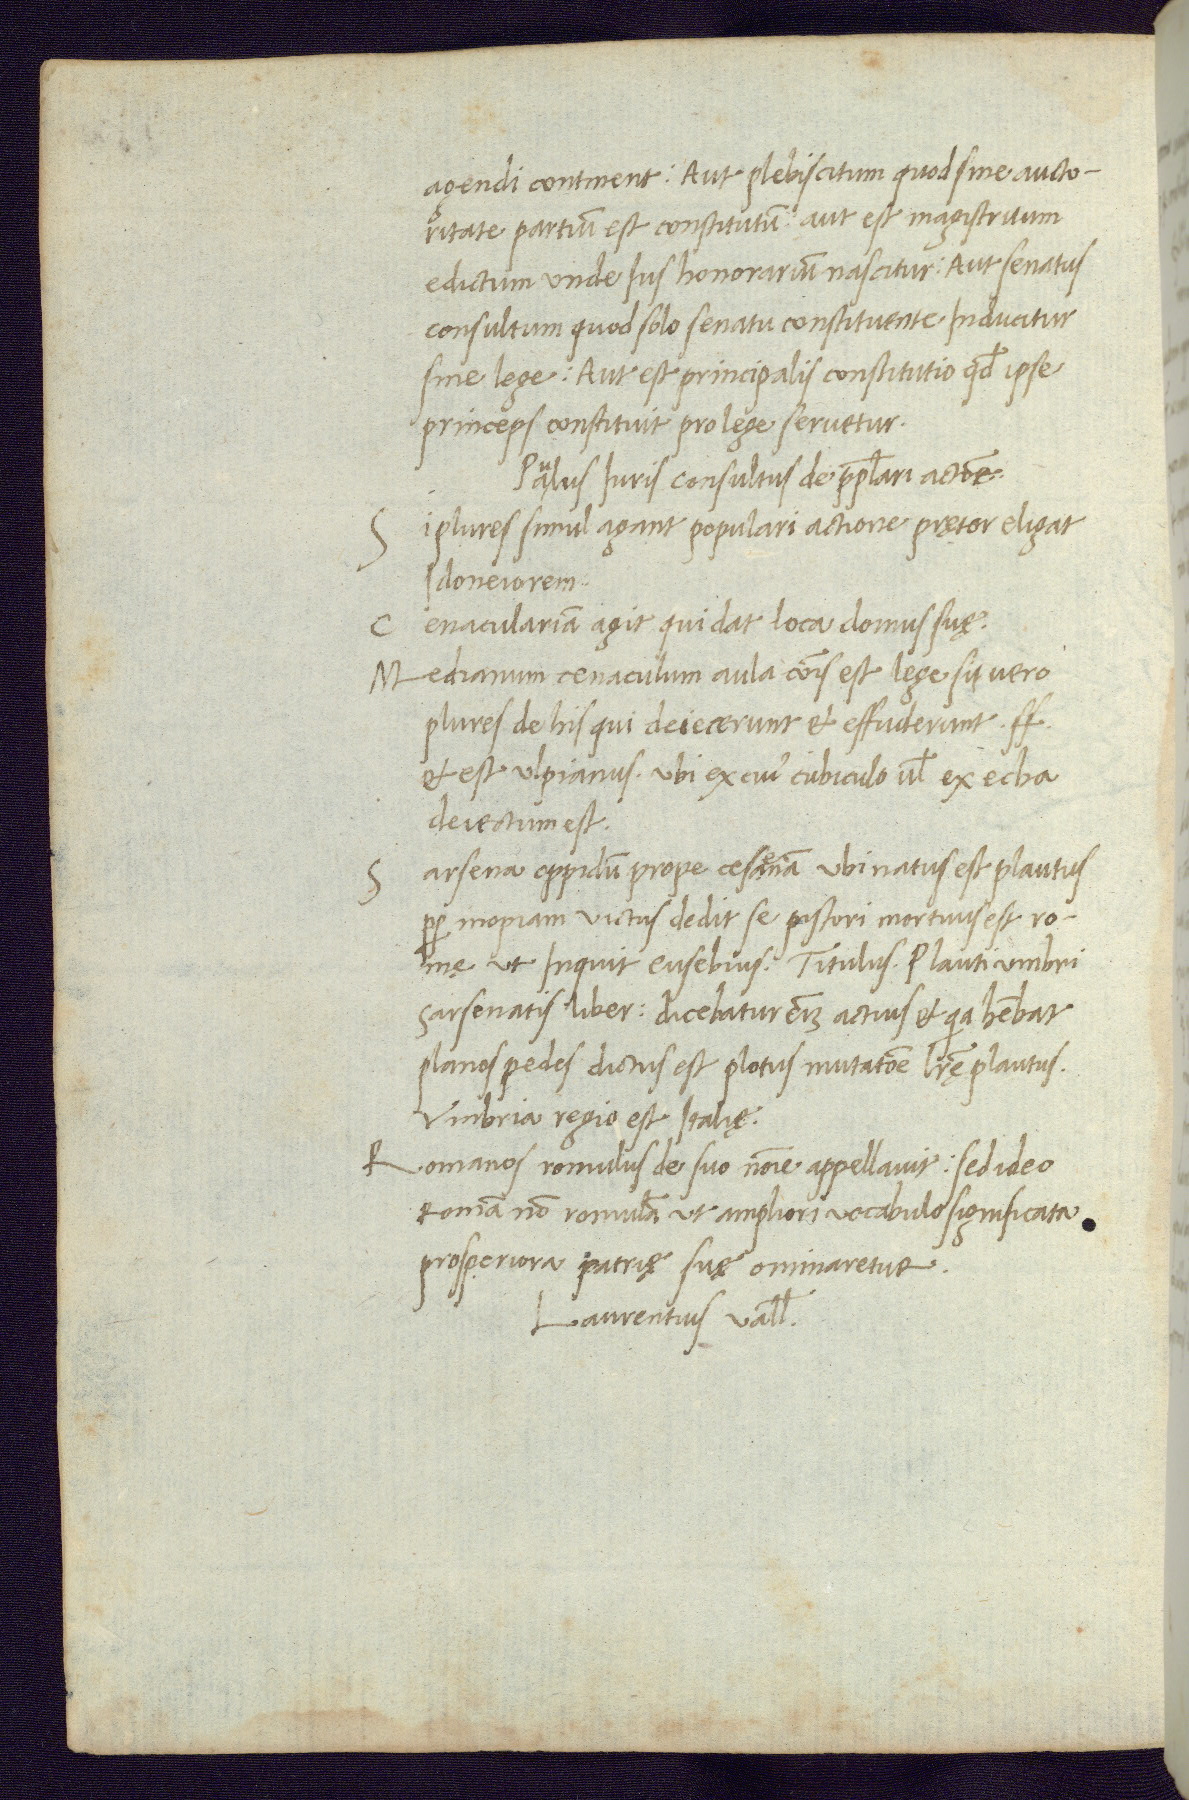 agendi continent: Aut plebiscitum quod sine aucto-
ritate partiū est constitutū: aut est magistrituum
edictum unde Ius honorariū nascitur: Aut senatus
consultum quod solo senatu constituente Inducitur
sine lege: Aut est principalis constitutio qđ ipse
princeps constituit pro lege seruetur.
Paulus Iuris consultus de pp̄lari actōe.
Si plures simul agant populari actione prętor eligat
Idoneiorem.
Cenaculariā agit qui dat loca domus suę.
Medianum cenaculum aula cōis est lege si uero
plures de his qui deiecerunt et effuderunt. ff.
et est ulpianus. ubi ex cuiꝰ cubiculo uł ex ecba
deiectum est.
Sarsena oppidū prope cesenā ubi natus est plautus
ꝑp inopiam uictus dedit se pistori mortuus est ro-
mę ut Inquit eusebius. Titulus. Plauti umbri
sarsenatis liber: dicebatur em̄ actius et qa hēbat
planos pedes dictus est plotus mutatōe lr̄ę plautus.
Vmbria regio est Italię.
Romanos romulus de suo nōie appellauit: sed ideo
Romā nō romulā ut ampliori uocabulo significata
prosperiora patrię suę ominaretur.
Laurentius uall.